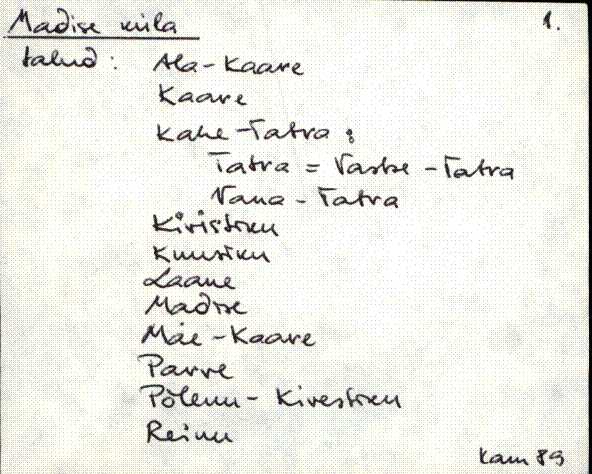 Madise küla 1.
talud: Ala-Kaare
Kaare
Kahe-Tatra:
Tatra = Vastse-Tatra
Vana-Tatra
Kivistiku
Kuusiku
Laane
Madise
Mäe-Kaare
Parve
Põlenu-Kivestiku
Reinu
Kam 89